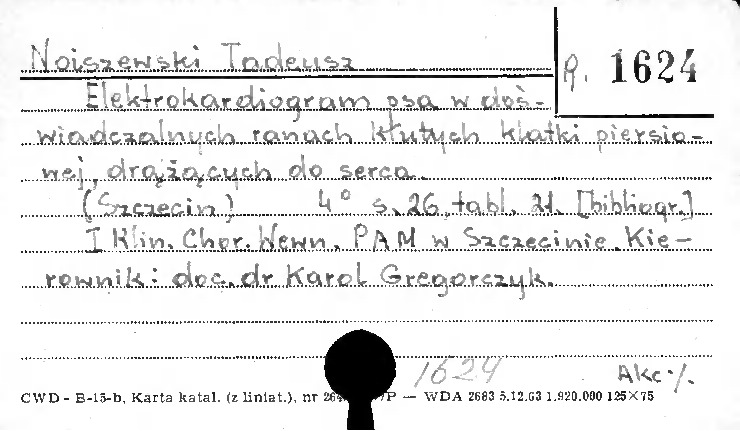 Noiszewski Tadeusz
R. 1624
Elektrokardiogram psa w doś-
wiadczalnych ranach kłutych klatki piersio-
wej, drążących do serca.
(Szczecin) 4° s. 26, tabl. 21. [bibliogr.]
I Klin. Chor. Wewn. PAM w Szczecinie. Kie-
rownik: doc. dr Karol Gregorczyk.
1624 Akc ./.
CWD - B-15-b, Karta katal. (z liniat.), nr 264 /P — WDA 2683 5.12.63 1.920.000 125×75